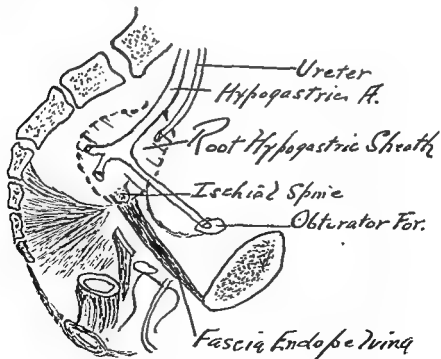 Ureter
Hypogastric A.
Root Hypogastric Sheath
Ischial Spine
Obturator For.
Fascia Endopelvina